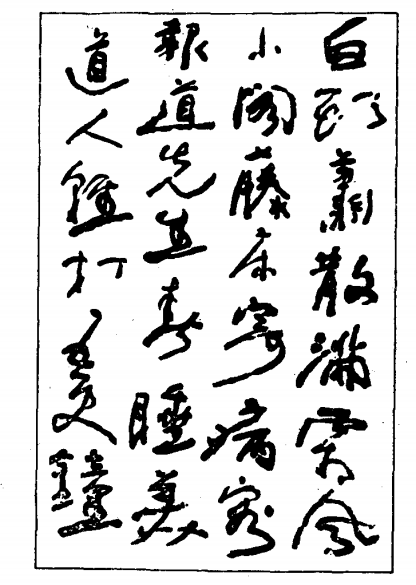 白頭蕭散滿霜風
小閣藤床寄病容
報道先生春睡美
道人輕打五更鐘